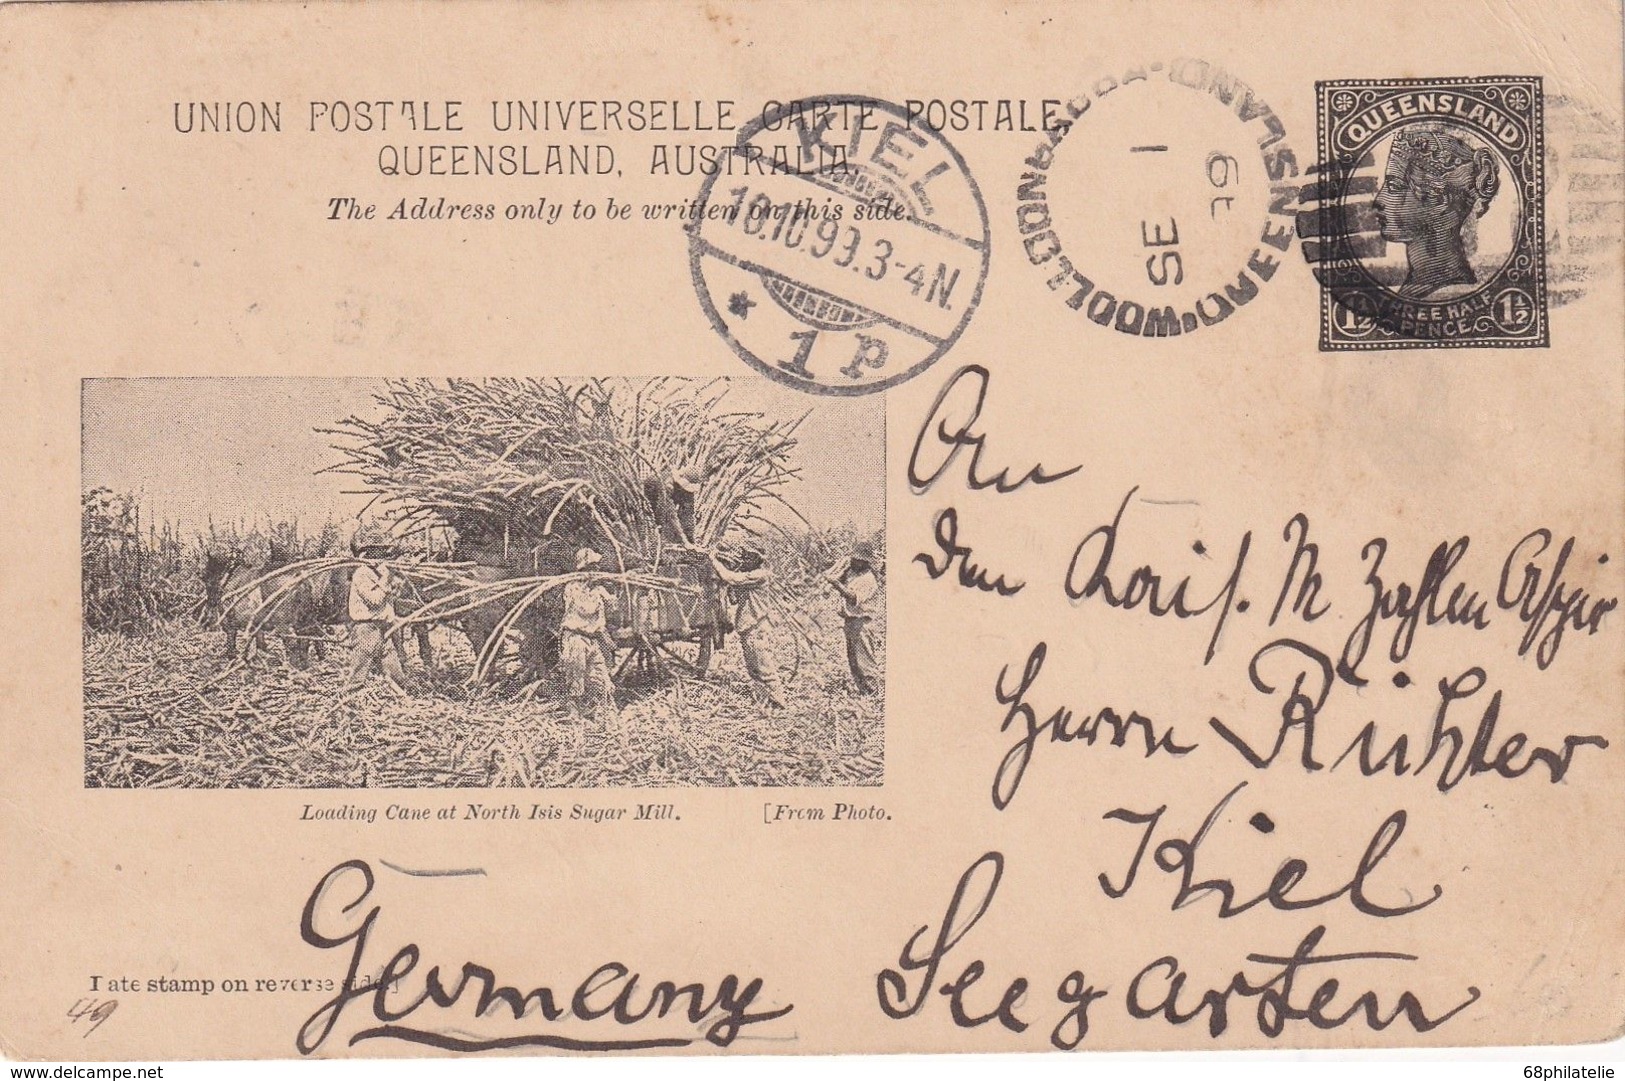 UNION POSTALE UNIVERSELLE CARTE POSTALE
QUEENSLAND, AUSTRALIA.
The Address only to be written on this side.
KIEL
10.10.99.3-4N.
* 1 P
WOOLLOONGABBA·QUEENSLAND
SE 1
99
QUEENSLAND
THREE HALF
PENCE
1½ 1½
Loading Cane at North Isis Sugar Mill. [From Photo.
An
den Kais. M Zahlm Aspir
Herrn Richter
Kiel
Seegarten
Germany
Date stamp on reverse side.]
49
68philatelie